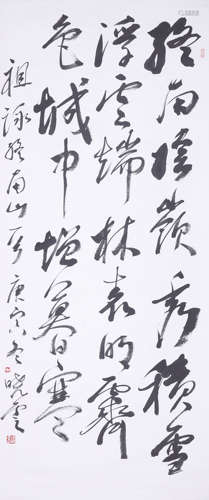 終南陰嶺秀積雪
浮云端林表明霽
色城中增暮寒
祖詠終南山 庚寅冬曉云